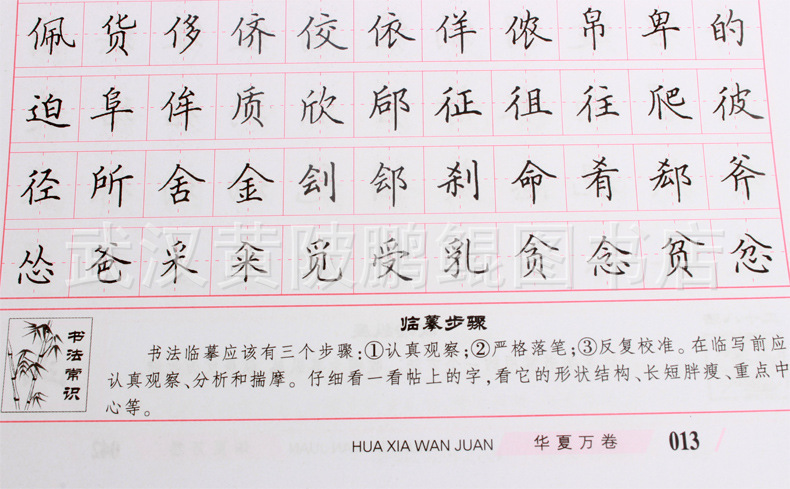 佩 货 侈 侪 佼 依 佯 侬 帛 卑 的
迫 阜 侔 质 欣 郈 征 徂 往 爬 彼
径 所 舍 金 刽 郐 刹 命 肴 郄 斧
怂 爸 采 籴 觅 受 乳 贪 念 贫 忿
武汉黄陂鹏鲲图书店
书法常识
临摹步骤
书法临摹应该有三个步骤:①认真观察;②严格落笔;③反复校准。在临写前应
认真观察、分析和揣摩。仔细看一看帖上的字,看它的形状结构、长短胖瘦、重点中
心等。
HUA XIA WAN JUAN 华夏万卷 013